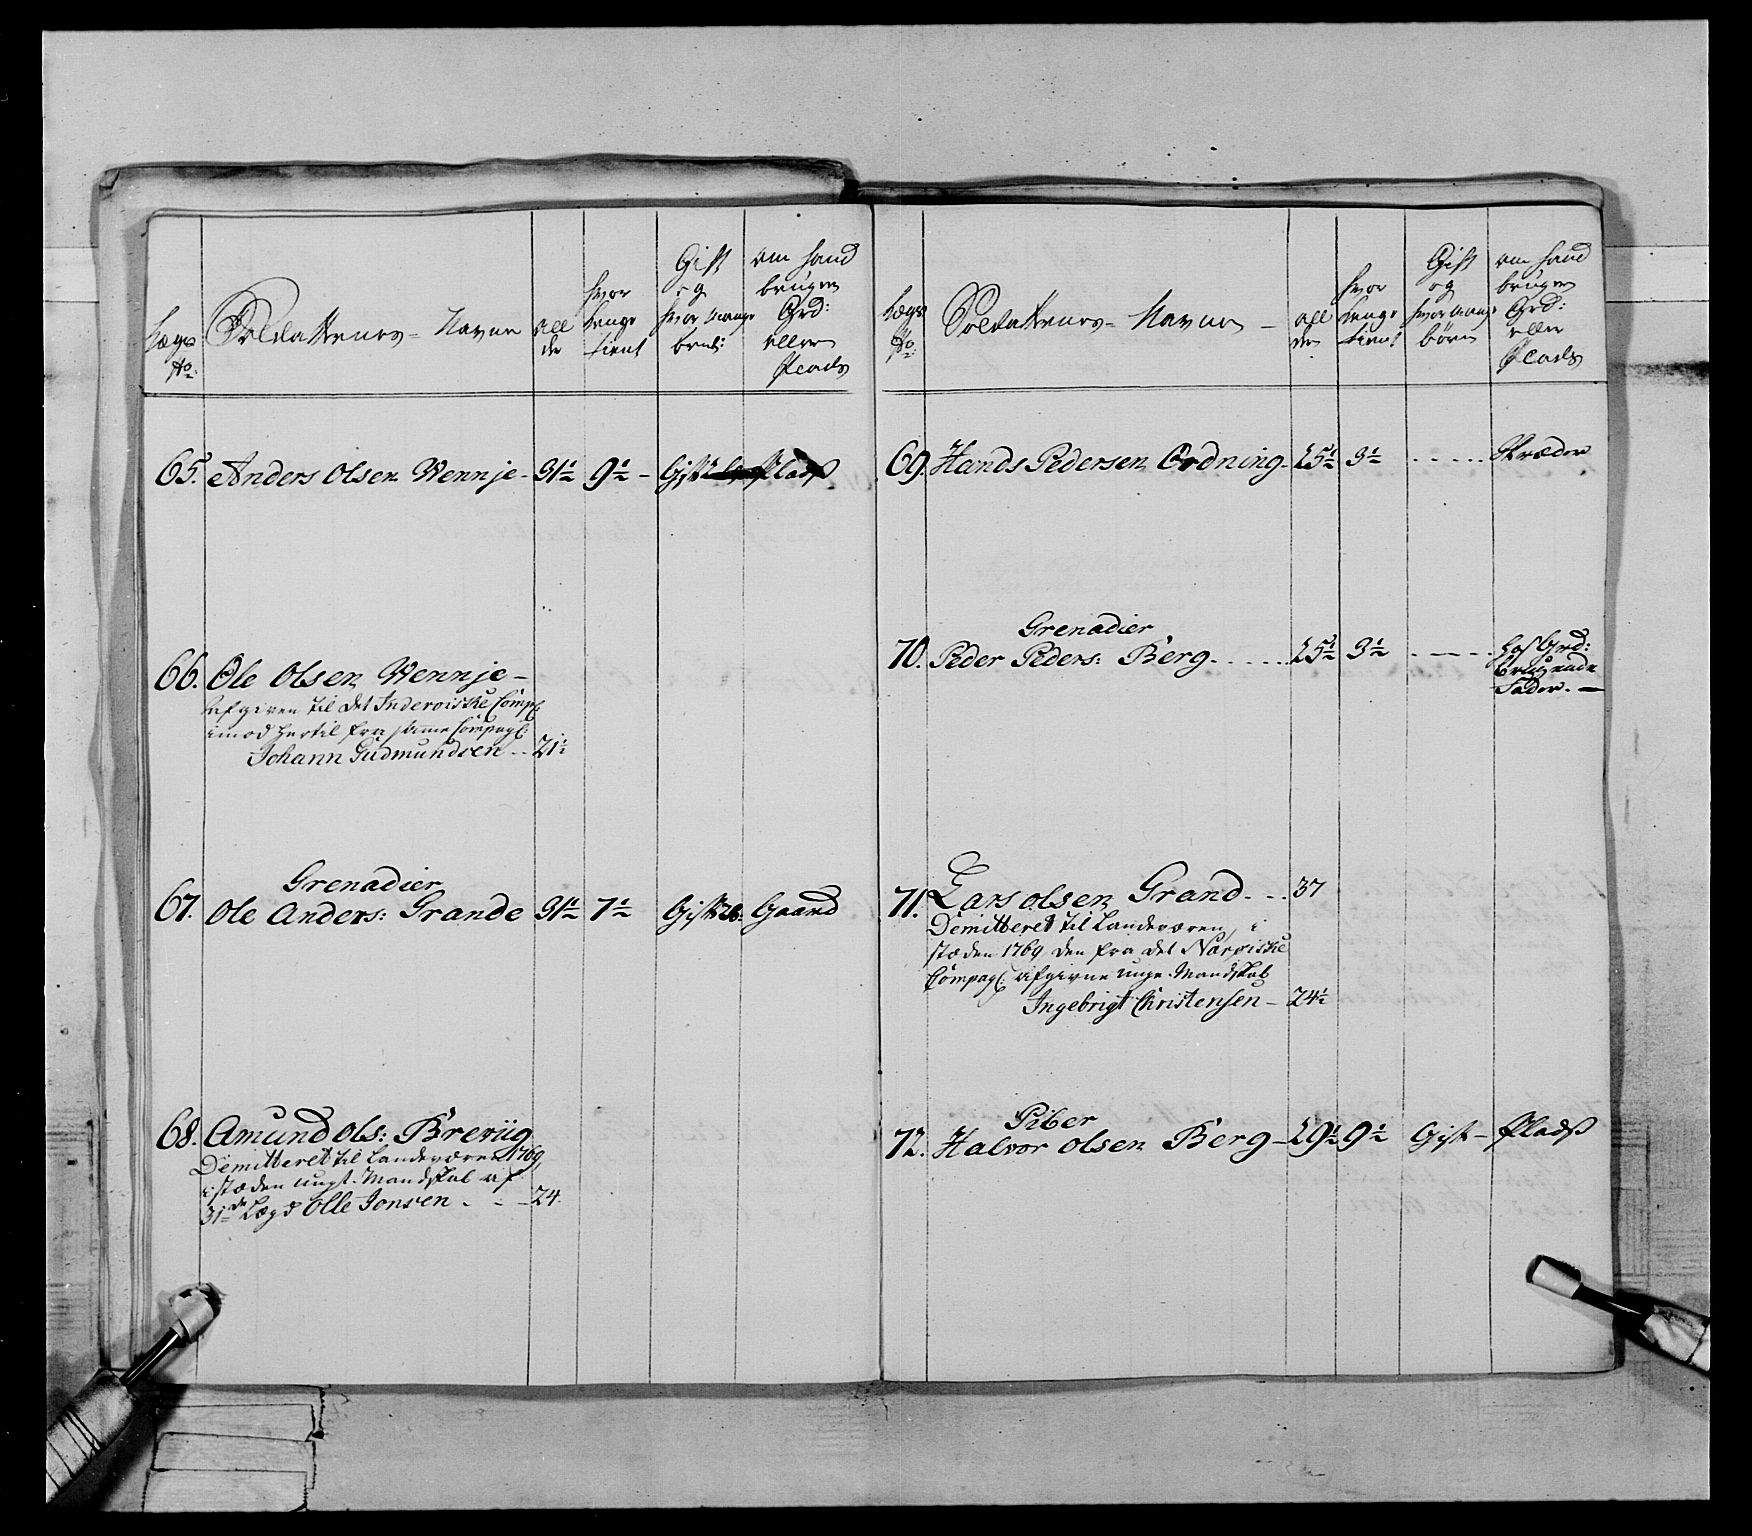 Lægs No:
Soldatternes Navne
All der
hvor lenge tient
Gift og hvor mange
om hand bruger Grd: eller Plads
65. Anders Olsen Wennje - 31½ 9½ - Gift Plads
66. Ole Olsen Wennje -
afgiven til det Inderoiske Comp:
imod hertil fra samme Compagl:
Johann Gudmundsen - - 21½
Grenadier
67. Ole Anders: Grande 31½ 7½ Gift 2b. Gaard
68. Amund Ols: Breviig
Demitteret til Landeværen 1769,
i stæden ungt Mandskab af
31de Lægd Olle Jonsen - - - 24.
Lægs No:
Soldatternes - Navne -
All der
hvor lenge tient
Gift og hvor mange børn
om hand bruger Grd: eller Plads
69. Hands Pedersen Ordning - 25½ 3½ - - - - - Skræder
Grenadier
70. Peder Peders: Berg - - - - - 25½ 3½ - - - - - hos Grd:
Brugende
Fader. -
71. Lars olsen Grand - - - 37
Demitteret til Landeværen, i
stæden 1769 den fra det Narøiske
Compagl: afgivne unge Mandskab
Ingebrigt Christensen - 24½
Piber
72. Halvor olsen Berg - 29½ 9½ Gift - Plads